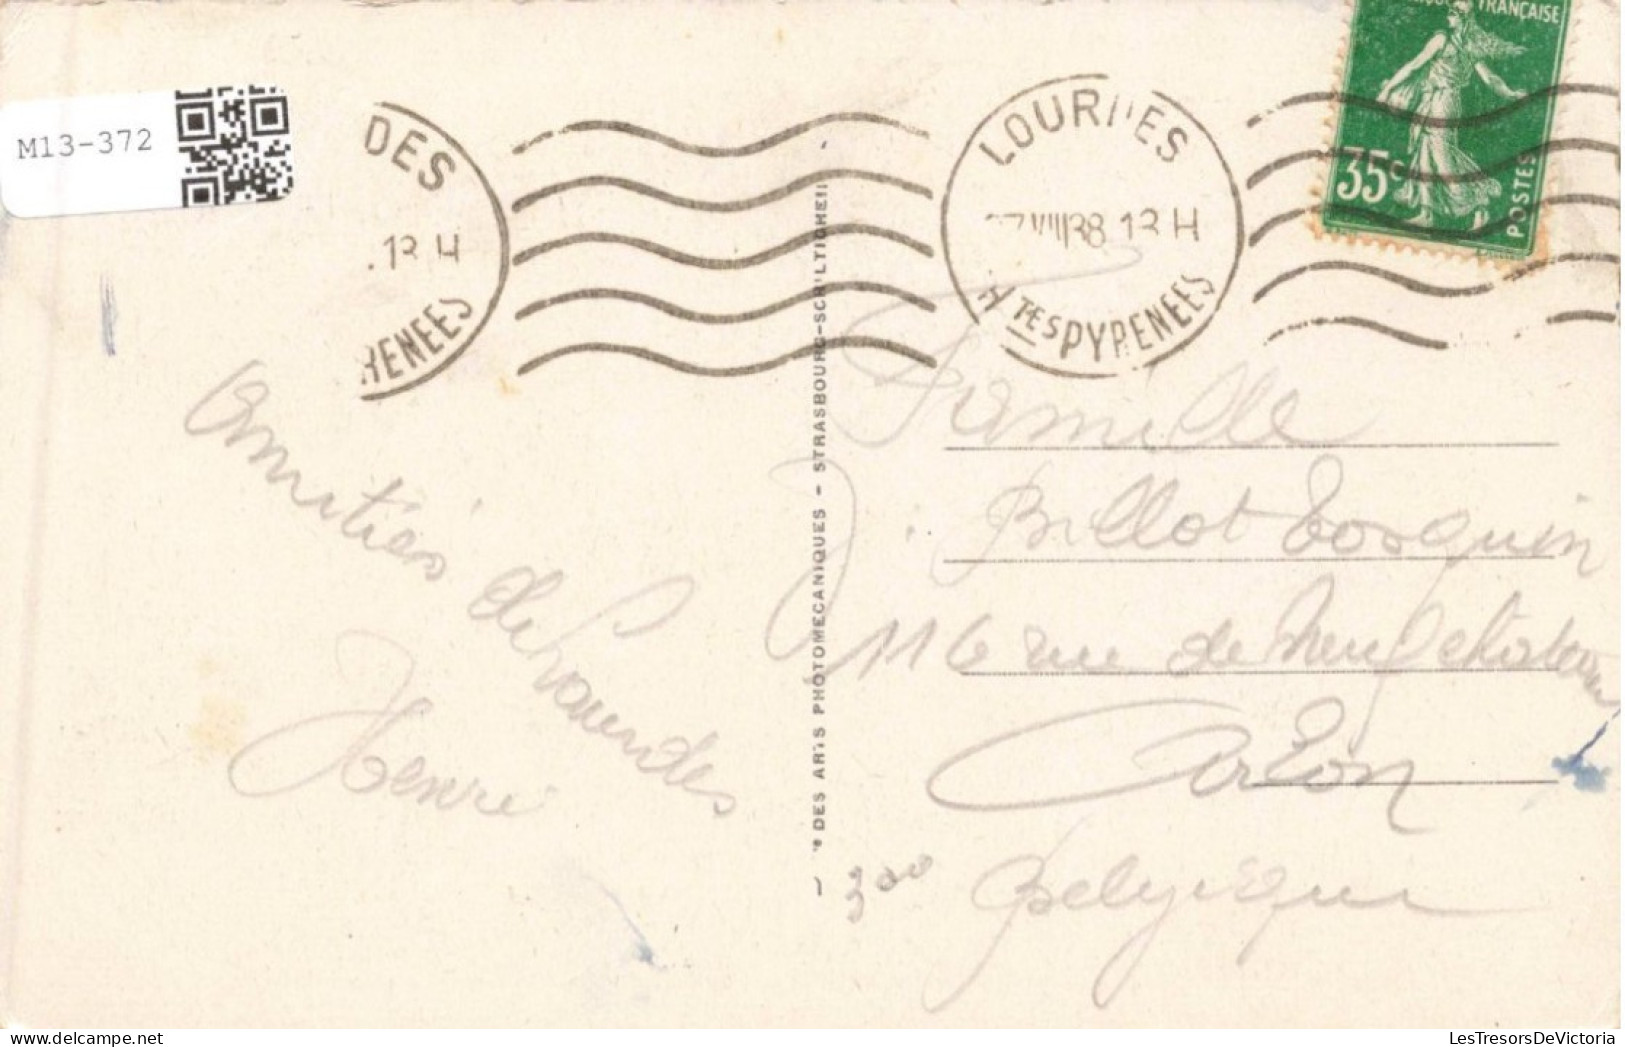 M13-372
DES
13 H
RENEES
LOURDES
VIII 38 13 H
HTES PYRENEES
FRANÇAISE
35c
POSTES
DES ARTS PHOTOMECANIQUES - STRASBOURG-SCHILTIGHEIM
Amitiés de Lourdes
Henri
Famille
Billot Tosquin
116 rue de Neufchateau
Arlon
Belgique
300
LesTresorsDeVictoria.com